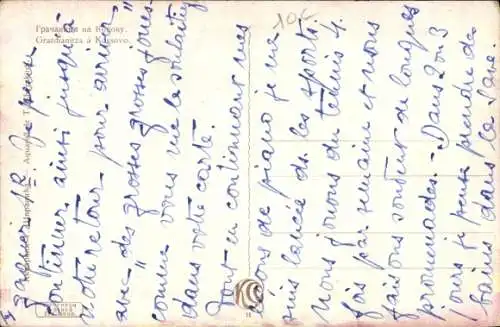 10€
Грачаница на Косову.
Gratchanitza à Kossovo.
janvier je pense
continuer ainsi jusqu'à
notre retour pour avoir
avec "des grosses joues"
comme vous me le souhaitez
dans votre carte.
Tout en continuant nos
leçons de piano je me
suis lancée dans les sports.
Nous jouons du tennis 4
fois par semaine et nous
faisons souvent de longues
promenades. - Dans 2 ou 3
jours je pense prendre des
bains dans la Save.